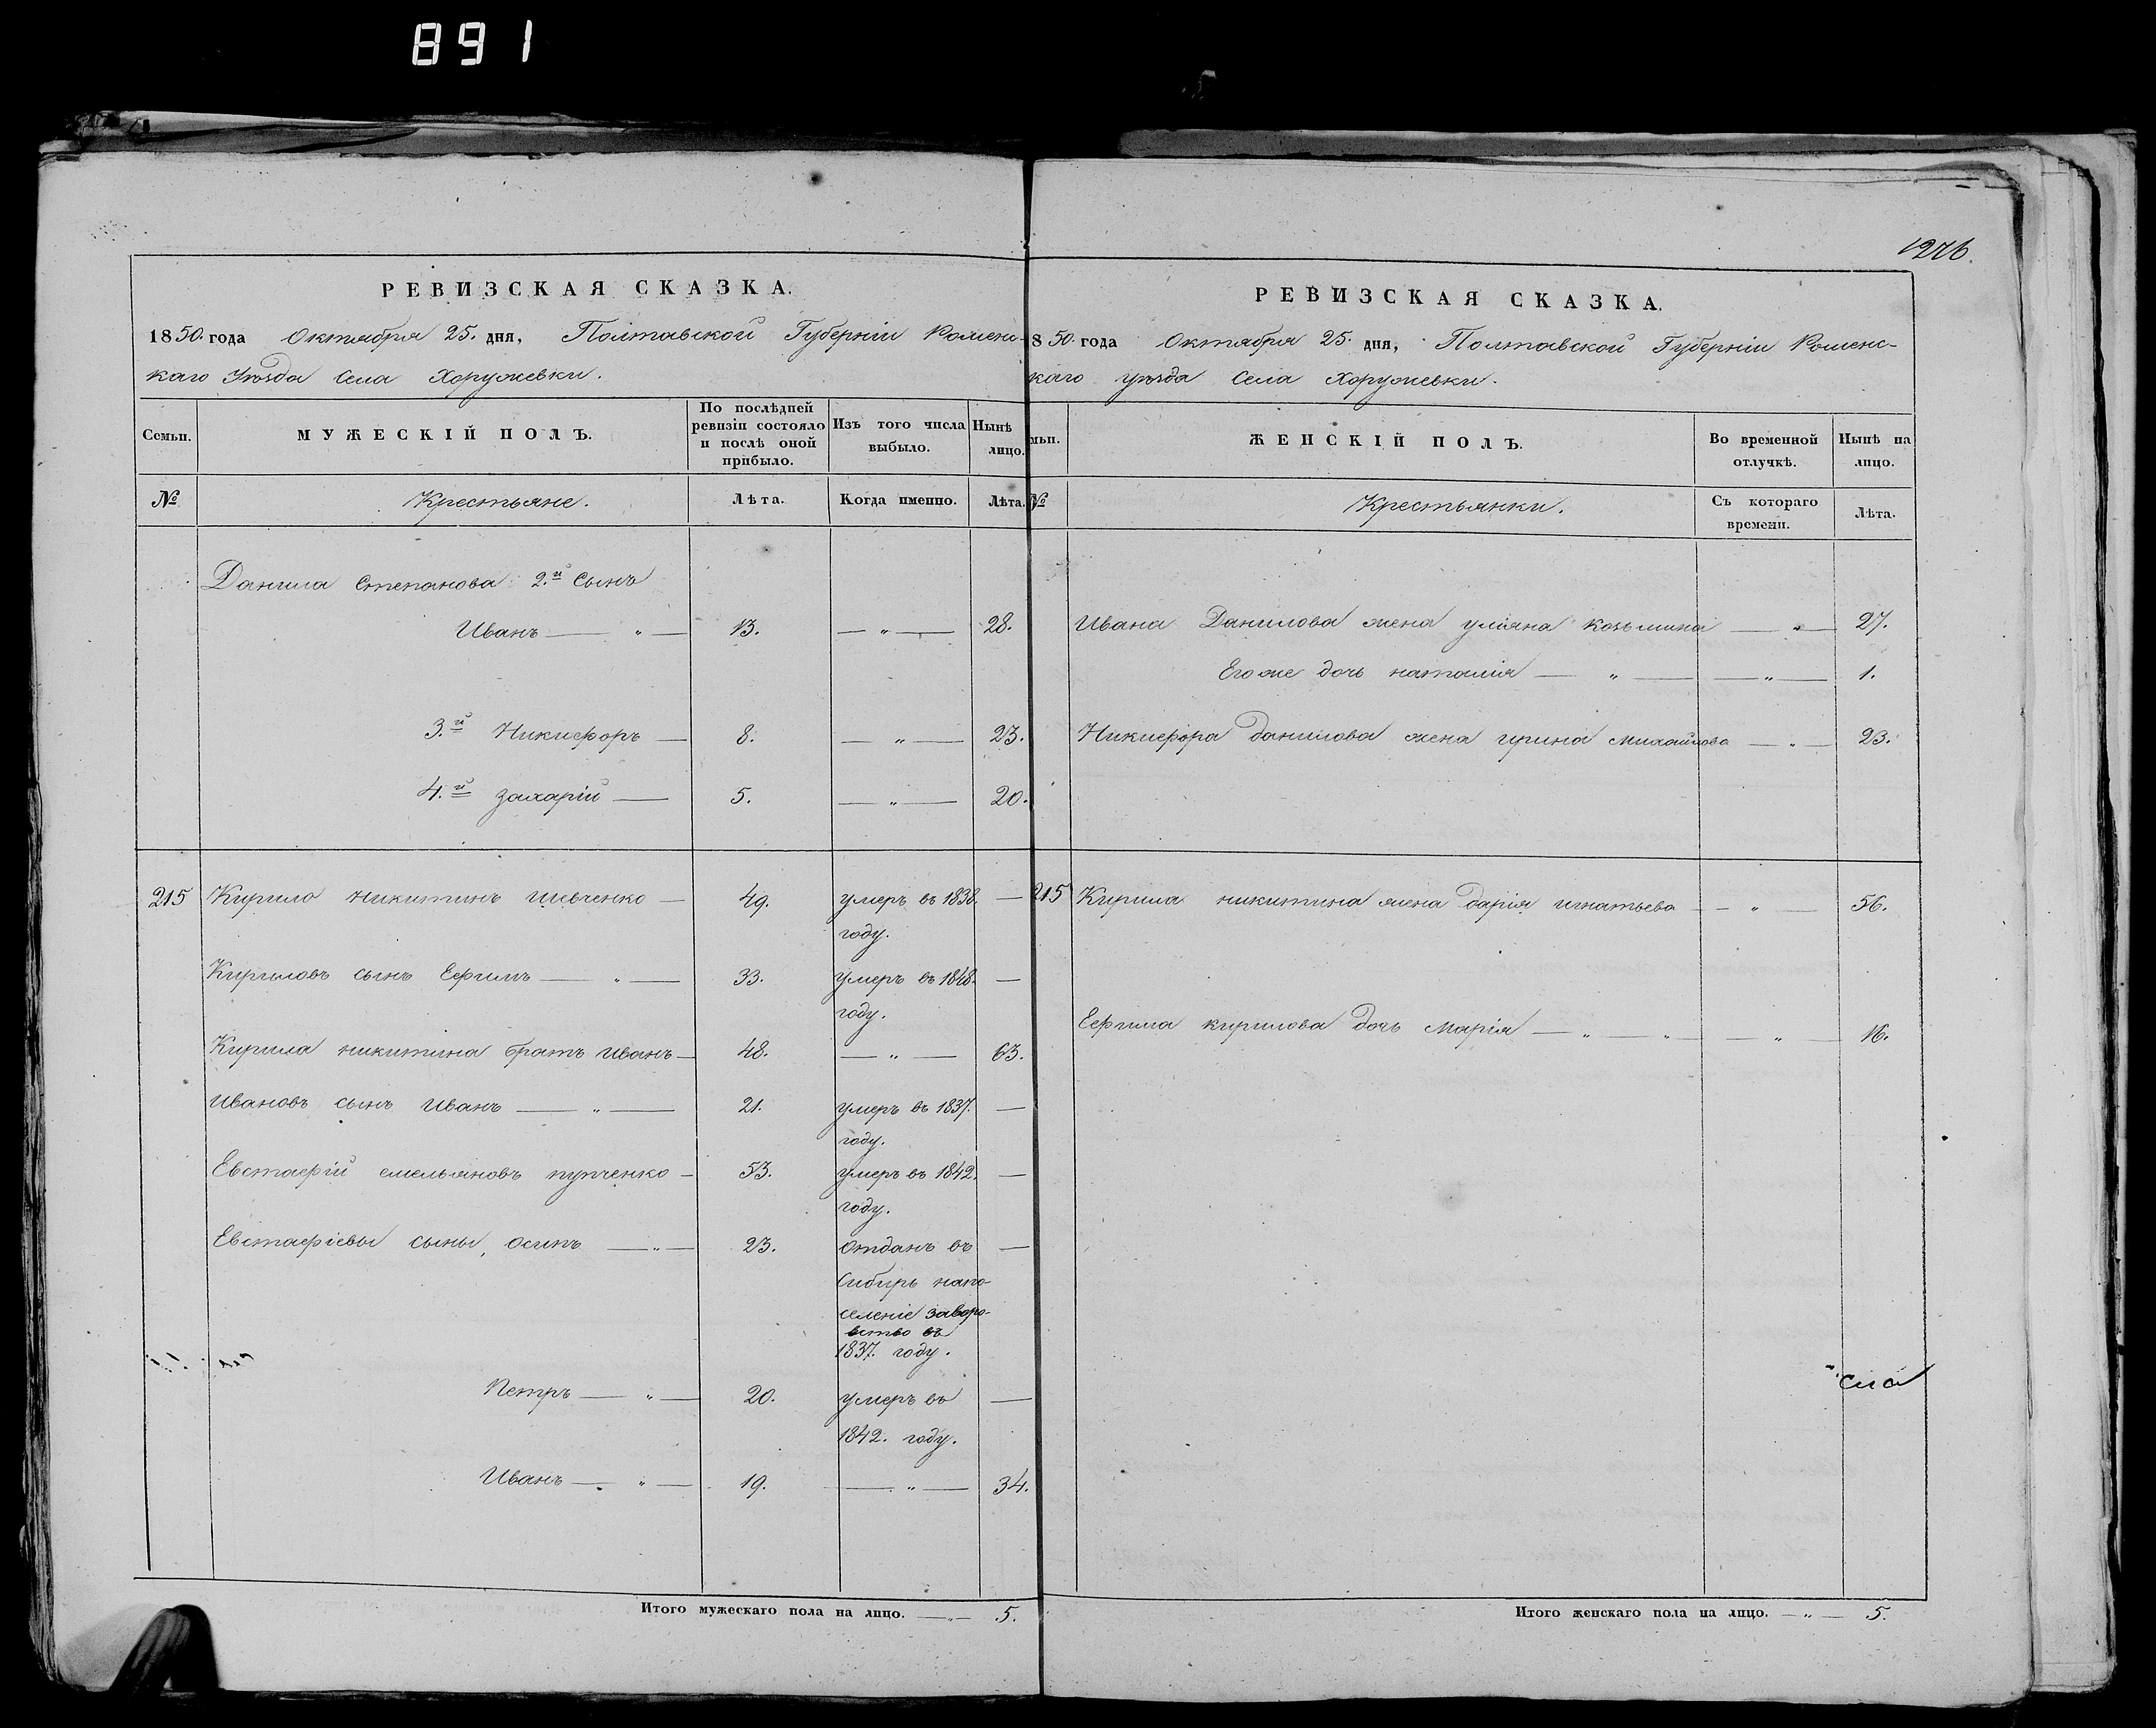 891
1276.
РЕВИЗСКАЯ СКАЗКА.
1850. года Октября 25. дня, Полтавской Губерніи Роменс-
каго Уѣзда Села Хоружевки.
Семьи. МУЖЕСКІЙ ПОЛЪ. По послѣдней ревизіи состояло и послѣ оной прибыло. Изъ того числа выбыло. Нынѣ лицо.
№ Крестьяне. Лѣта. Когда именно. Лѣта.
Данила Степанова 2.й Сынъ
Иванъ — „ — 13. — „ — 28.
3.й Никифоръ — 8. — „ — 23.
4.й Захарій — 5. — „ — 20.
215 Кирило Никитинъ Шевченко — 49. умеръ въ 1838. —
году.
Кириловъ сынъ Ефимъ — „ — 33. умеръ въ 1848. —
году.
Кирила никитина братъ Иванъ — 48. — „ — 63.
Ивановъ сынъ Иванъ — „ — 21. умеръ въ 1837. —
году.
Евстафій емельяновъ пупченко — 53. умеръ въ 1842. —
году.
Евстафіевы сыны, осипъ — „ — 23. отданъ въ —
Сибирь напо-
селеніе заворо-
вство въ
1837. году.
Петръ — „ — 20. умеръ въ —
1842. году.
Иванъ — „ — 19. — „ — 34.
Итого мужескаго пола на лицо. — „ — 5.
РЕВИЗСКАЯ СКАЗКА.
850. года Октября 25. дня, Полтавской Губерніи Роменс-
каго уѣзда Села Хоружевки.
мьи. ЖЕНСКІЙ ПОЛЪ. Во временной отлучкѣ. Нынѣ на лицо.
№ Крестьянки. Съ котораго времени. Лѣта.
Ивана Данилова жена уліяна козьмина — „ — 27.
Его же дочь наталія — „ — — „ — 1.
Никифора данилова жена ирина михайлова — „ — 23.
215 Кирила никитина жена дарія игнатьева — „ — 56.
Ефима кирилова дочь марія — „ — „ — — „ — 16.
Итого женскаго пола на лицо. — „ — 5.